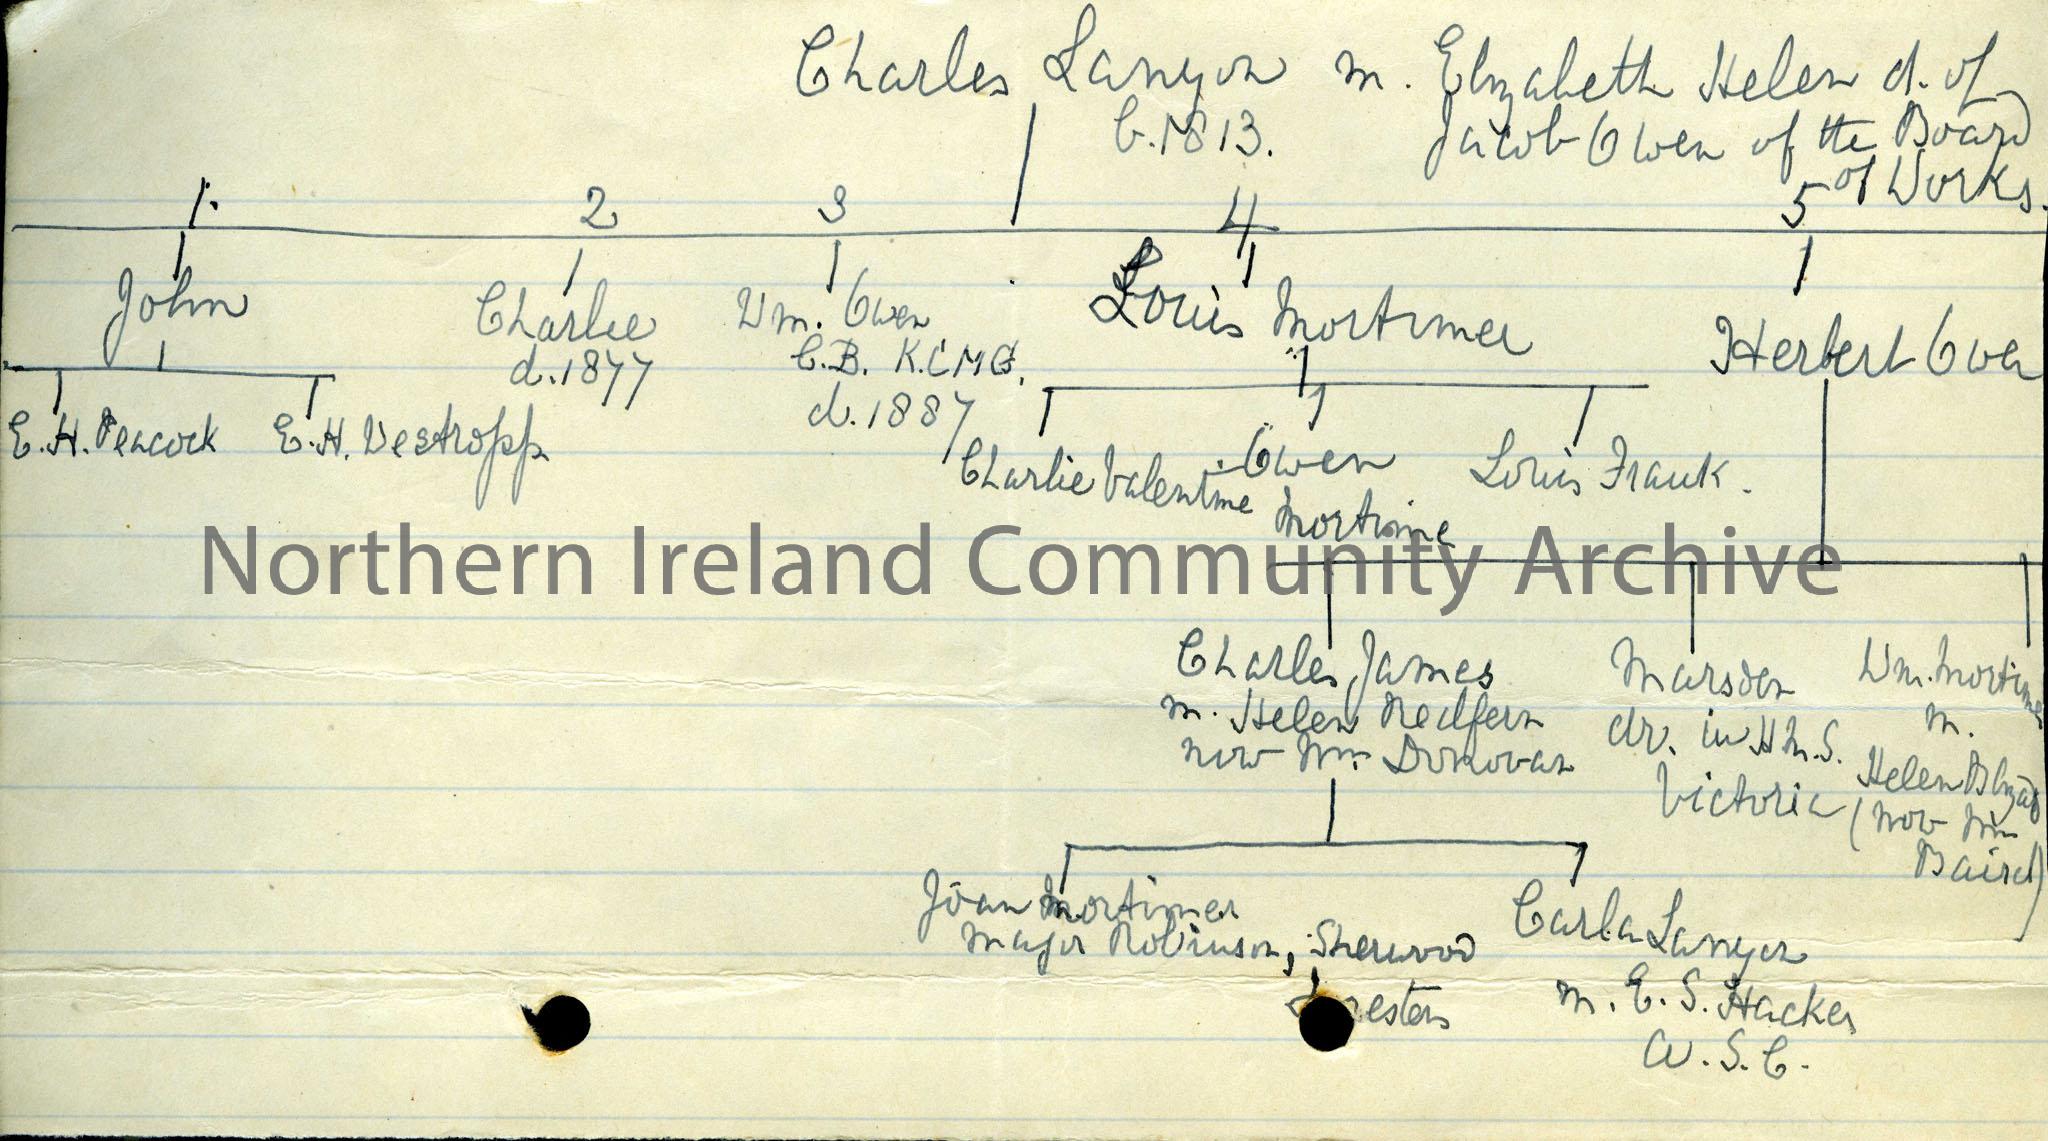 Charles Lanyon m. Elizabeth Helen d. of
b. 1813. Jacob Owen of the Board
of Works.
1. 2 3 4 5
John Charlie Wm. Owen Louis Mortimer Herbert Owen
d. 1877 C.B. K.C.M.G.
d. 1887
E.H. Peacock E.H. Westropp
Charlie Valentine Owen Louis Frank.
Mortime
Northern Ireland Community Archive
Charles James Marsden Wm. Mortimer
m. Helen Redfern dr. in H.M.S. m.
now Mrs Donovan Victoria Helen
(now Mrs
Baird)
Joan Mortimer Carla Lanyon
Major Robinson, Sherwood m. E. S. Hacker
resters